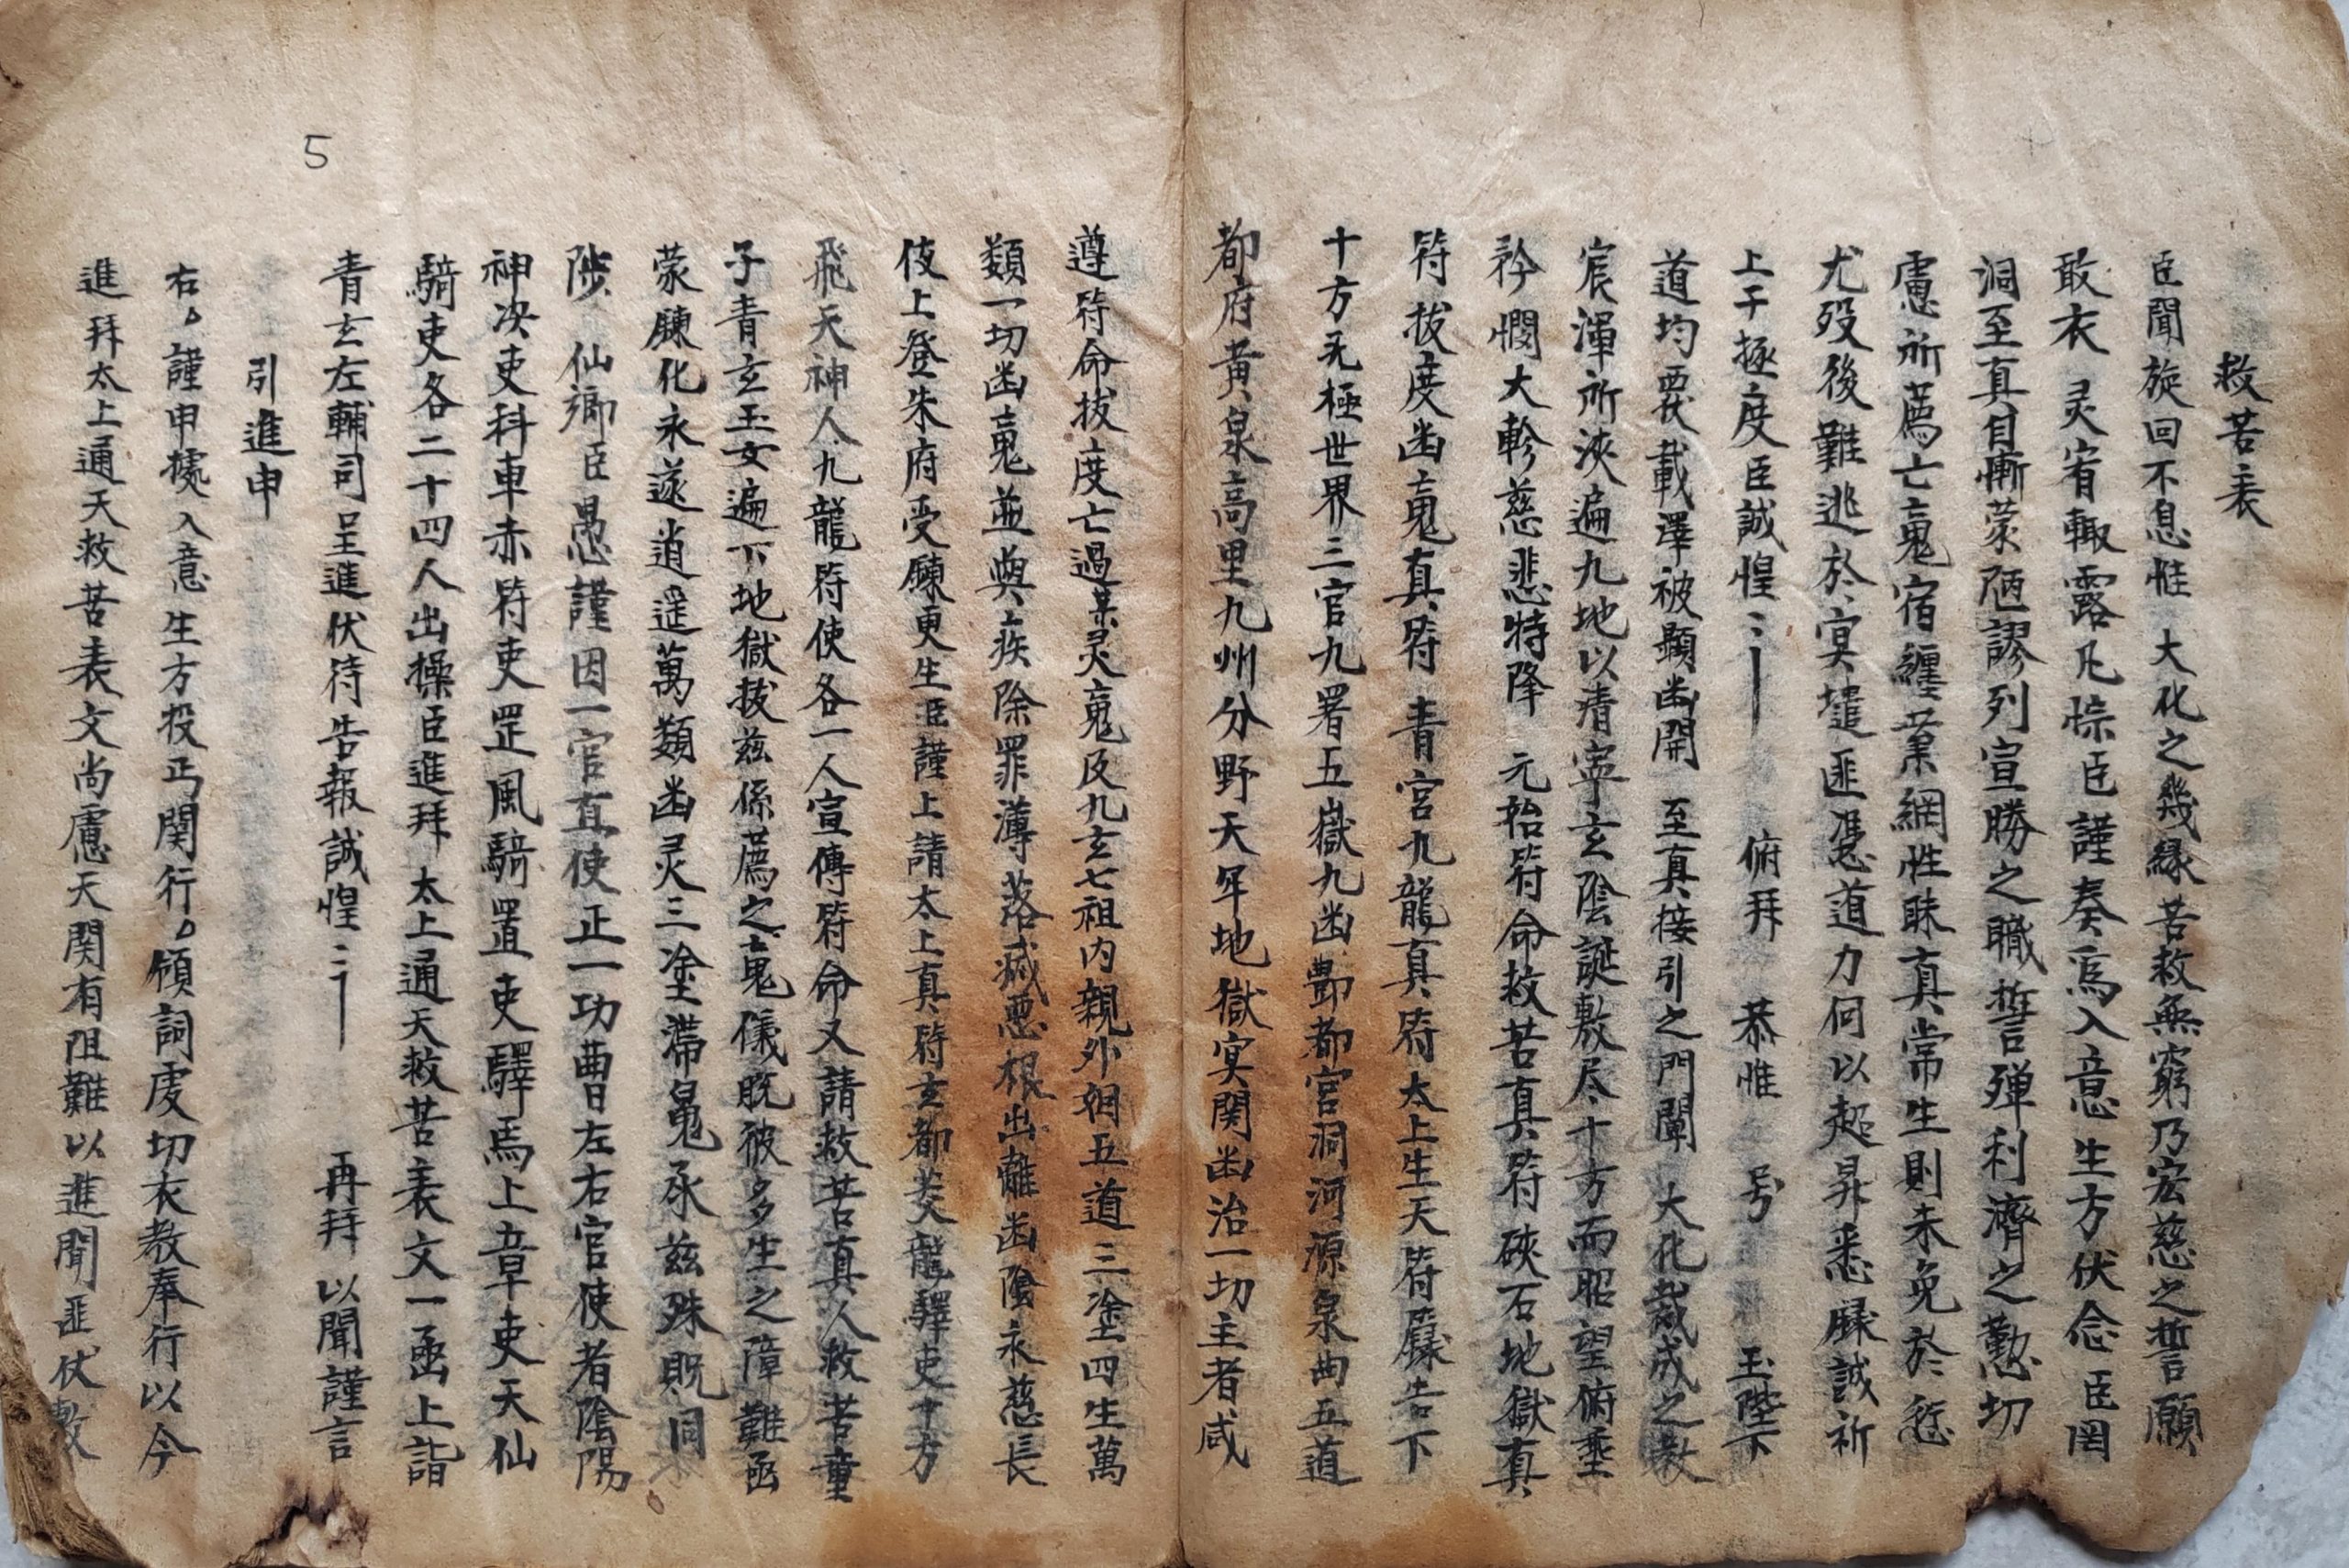 救苦表
臣聞旋回不息惟 大化之幾緣苦救無窮乃宏慈之誓願
敢衣 灵宥輙露凡悰臣謹奏為入意生方伏念臣罔
洞至真自慚蒙陋謬列宣勝之職誓殫利濟之懃切
慮所薦亡䰟宿纏業網性昧真常生則未免於愆
尤歿後難逃於冥壚匪凴道力何以超昇悉䤼誠祈
上干極度臣誠惶〻 俯拜 恭惟 号 玉陛下
道均覆載澤被顯幽開 至真接引之門闡 大化裁成之教
宸渾所浹遍九地以清寧玄陰誕敷尽十方而昭望俯垂
矜憫大軫慈悲特降 元始符命救苦真符硤石地獄真
符拔度幽䰟真符 青宮九龍真符太上生天符籙告下
十方无極世界三官九署五嶽九幽酆都宮洞河源泉曲五道
都府黃泉高里九州分野天牢地獄冥関幽治一切主者咸
遵符命拔度亡過某灵䰟及九玄七祖内親外姻五道三塗四生萬
類一切幽䰟並與疾除罪薄落滅惡根出離幽陰永慈長
夜上登朱府受鍊更生臣謹上請太上真符玄都美龍驛吏十方
飛天神人九龍符使各一人宣傳符命又請救苦真人救苦童
子青玄玉女遍下地獄拔兹係薦之䰟儀既彼多生之障難函
蒙鍊化永遂逍遥萬類幽灵三塗滞䰟承兹殊貺同
陟 仙鄉臣愚謹因一官直使正一功曹左右官使者陰陽
神决吏科車赤符吏罡風騎置吏驛馬上章吏天仙
騎吏各二十四人出操臣進拜 太上通天救苦表文一函上詣
青玄左輔司呈進伏待告報誠惶〻 再拜 以聞謹言
引進申
右，謹申據入意生方投丐関行，領詞虔切衣教奉行以今
進拜太上通天救苦表文尚慮天関有阻難以進聞匪伏敷
5